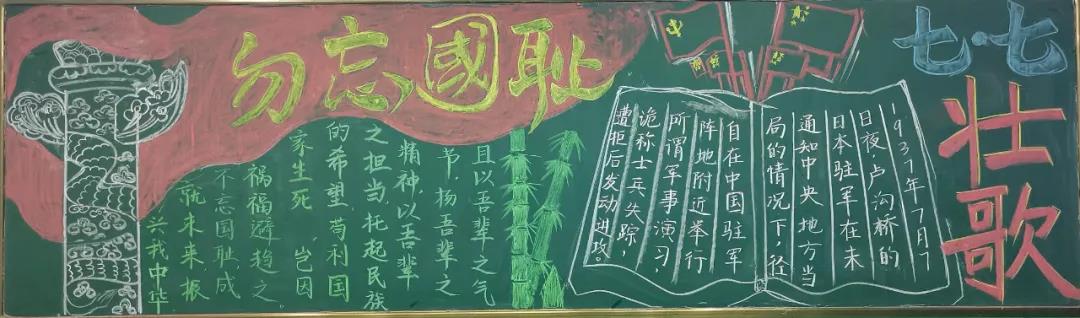 勿忘國耻
七·七
壮歌
1937年7月7
日夜,卢沟桥的
日本驻军在未
通知中央地方当
局的情况下,径
自在中国驻军
阵地附近举行
所谓军事演习,
诡称士兵失踪,
遭拒后发动进攻。
且以吾辈之气
节,扬吾辈之
精神,以吾辈
之担当,托起民族
的希望,苟利国
家生死,岂因
祸福避趋之。
不忘国耻,成
就未来,振
兴我中华